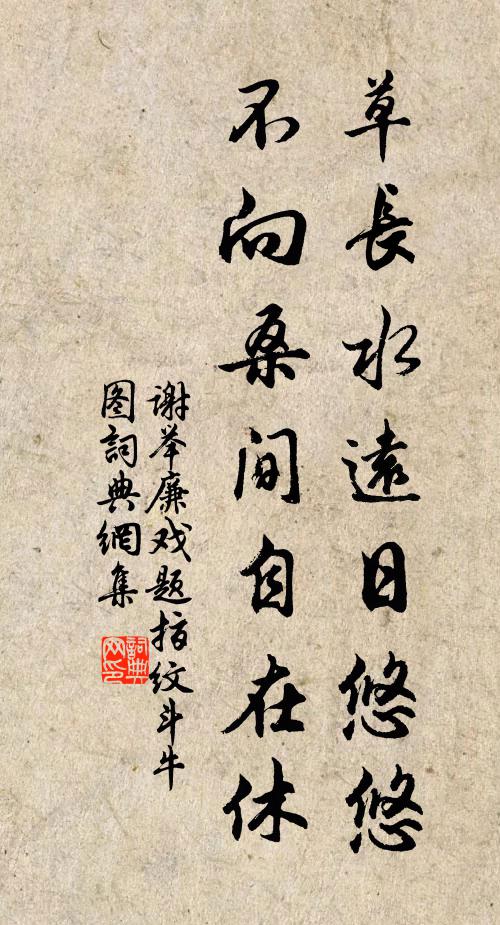 草長水遠日悠悠
不向桑間自在休
谢举廉戏题指纹斗牛
图詞典網集
詞典网印